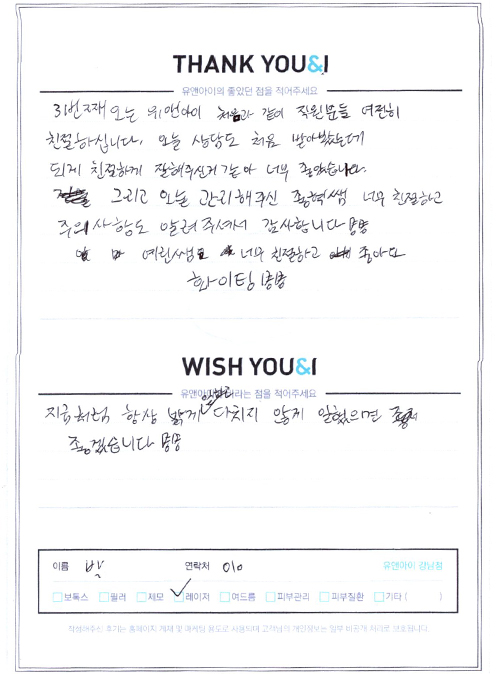 THANK YOU&I
유앤아이의 좋았던 점을 적어주세요
3번째 오는 유앤아이 처음과 같이 직원분들 여전히
친절하십니다. 오늘 상담도 처음 받아봤는데
되게 친절하게 잘해주신거 같아 너무 좋았습니다.
그리고 오늘 관리해주신 쌤 너무 친절하고
주의사항도 알려주셔서 감사합니다
예린쌤 너무 친절하고 좋아요
화이팅
WISH YOU&I
유앤아이 바라는 점을 적어주세요
지금처럼 항상 밝게 다치지 않게 일했으면
좋겠습니다
이름 박 연락처 010 유앤아이 강남점
보톡스 필러 제모 레이저 여드름 피부관리 피부질환 기타 ( )
작성해주신 후기는 홈페이지 게재 및 마케팅 용도로 사용되며 고객님의 개인정보는 일부 비공개 처리로 보호됩니다.